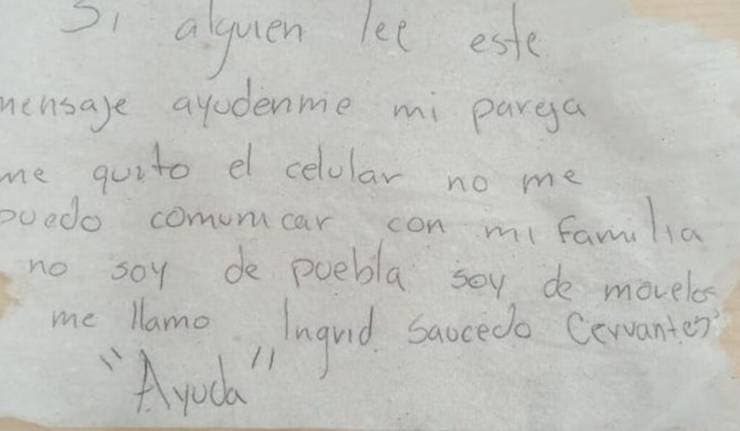 Si alguien lee este
mensaje ayudenme mi pareja
me quito el celular no me
puedo comunicar con mi familia
no soy de puebla soy de morelos
me llamo Ingrid Saucedo Cervantes
"Ayuda"